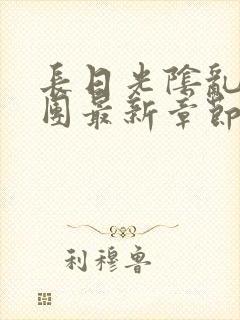 長日光陰亂
團最新章節
利穆魯